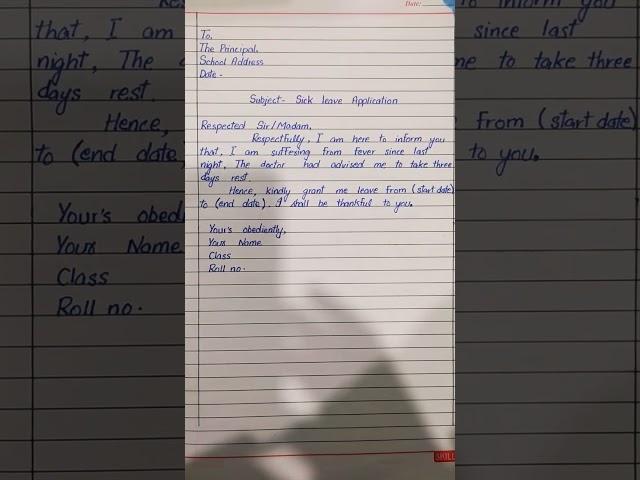 Date:
To,
The Principal,
School Address
Date -
Subject- Sick leave Application
Respected Sir/Madam,
Respectfully, I am here to inform you
that, I am suffering from fever since last
night, The doctor had advised me to take three
days rest.
Hence, kindly grant me leave from (start date)
to (end date). I shall be thankful to you.
Your's obediently,
Your Name
Class
Roll no.
SKILL
to inform you
that, I am
since last
night, The
me to take three
days rest.
Hence,
from (start date)
to (end date
to you.
Your's obedi
Your Name
Class
Roll no.